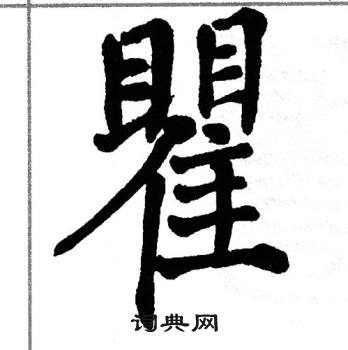 瞿
词典网